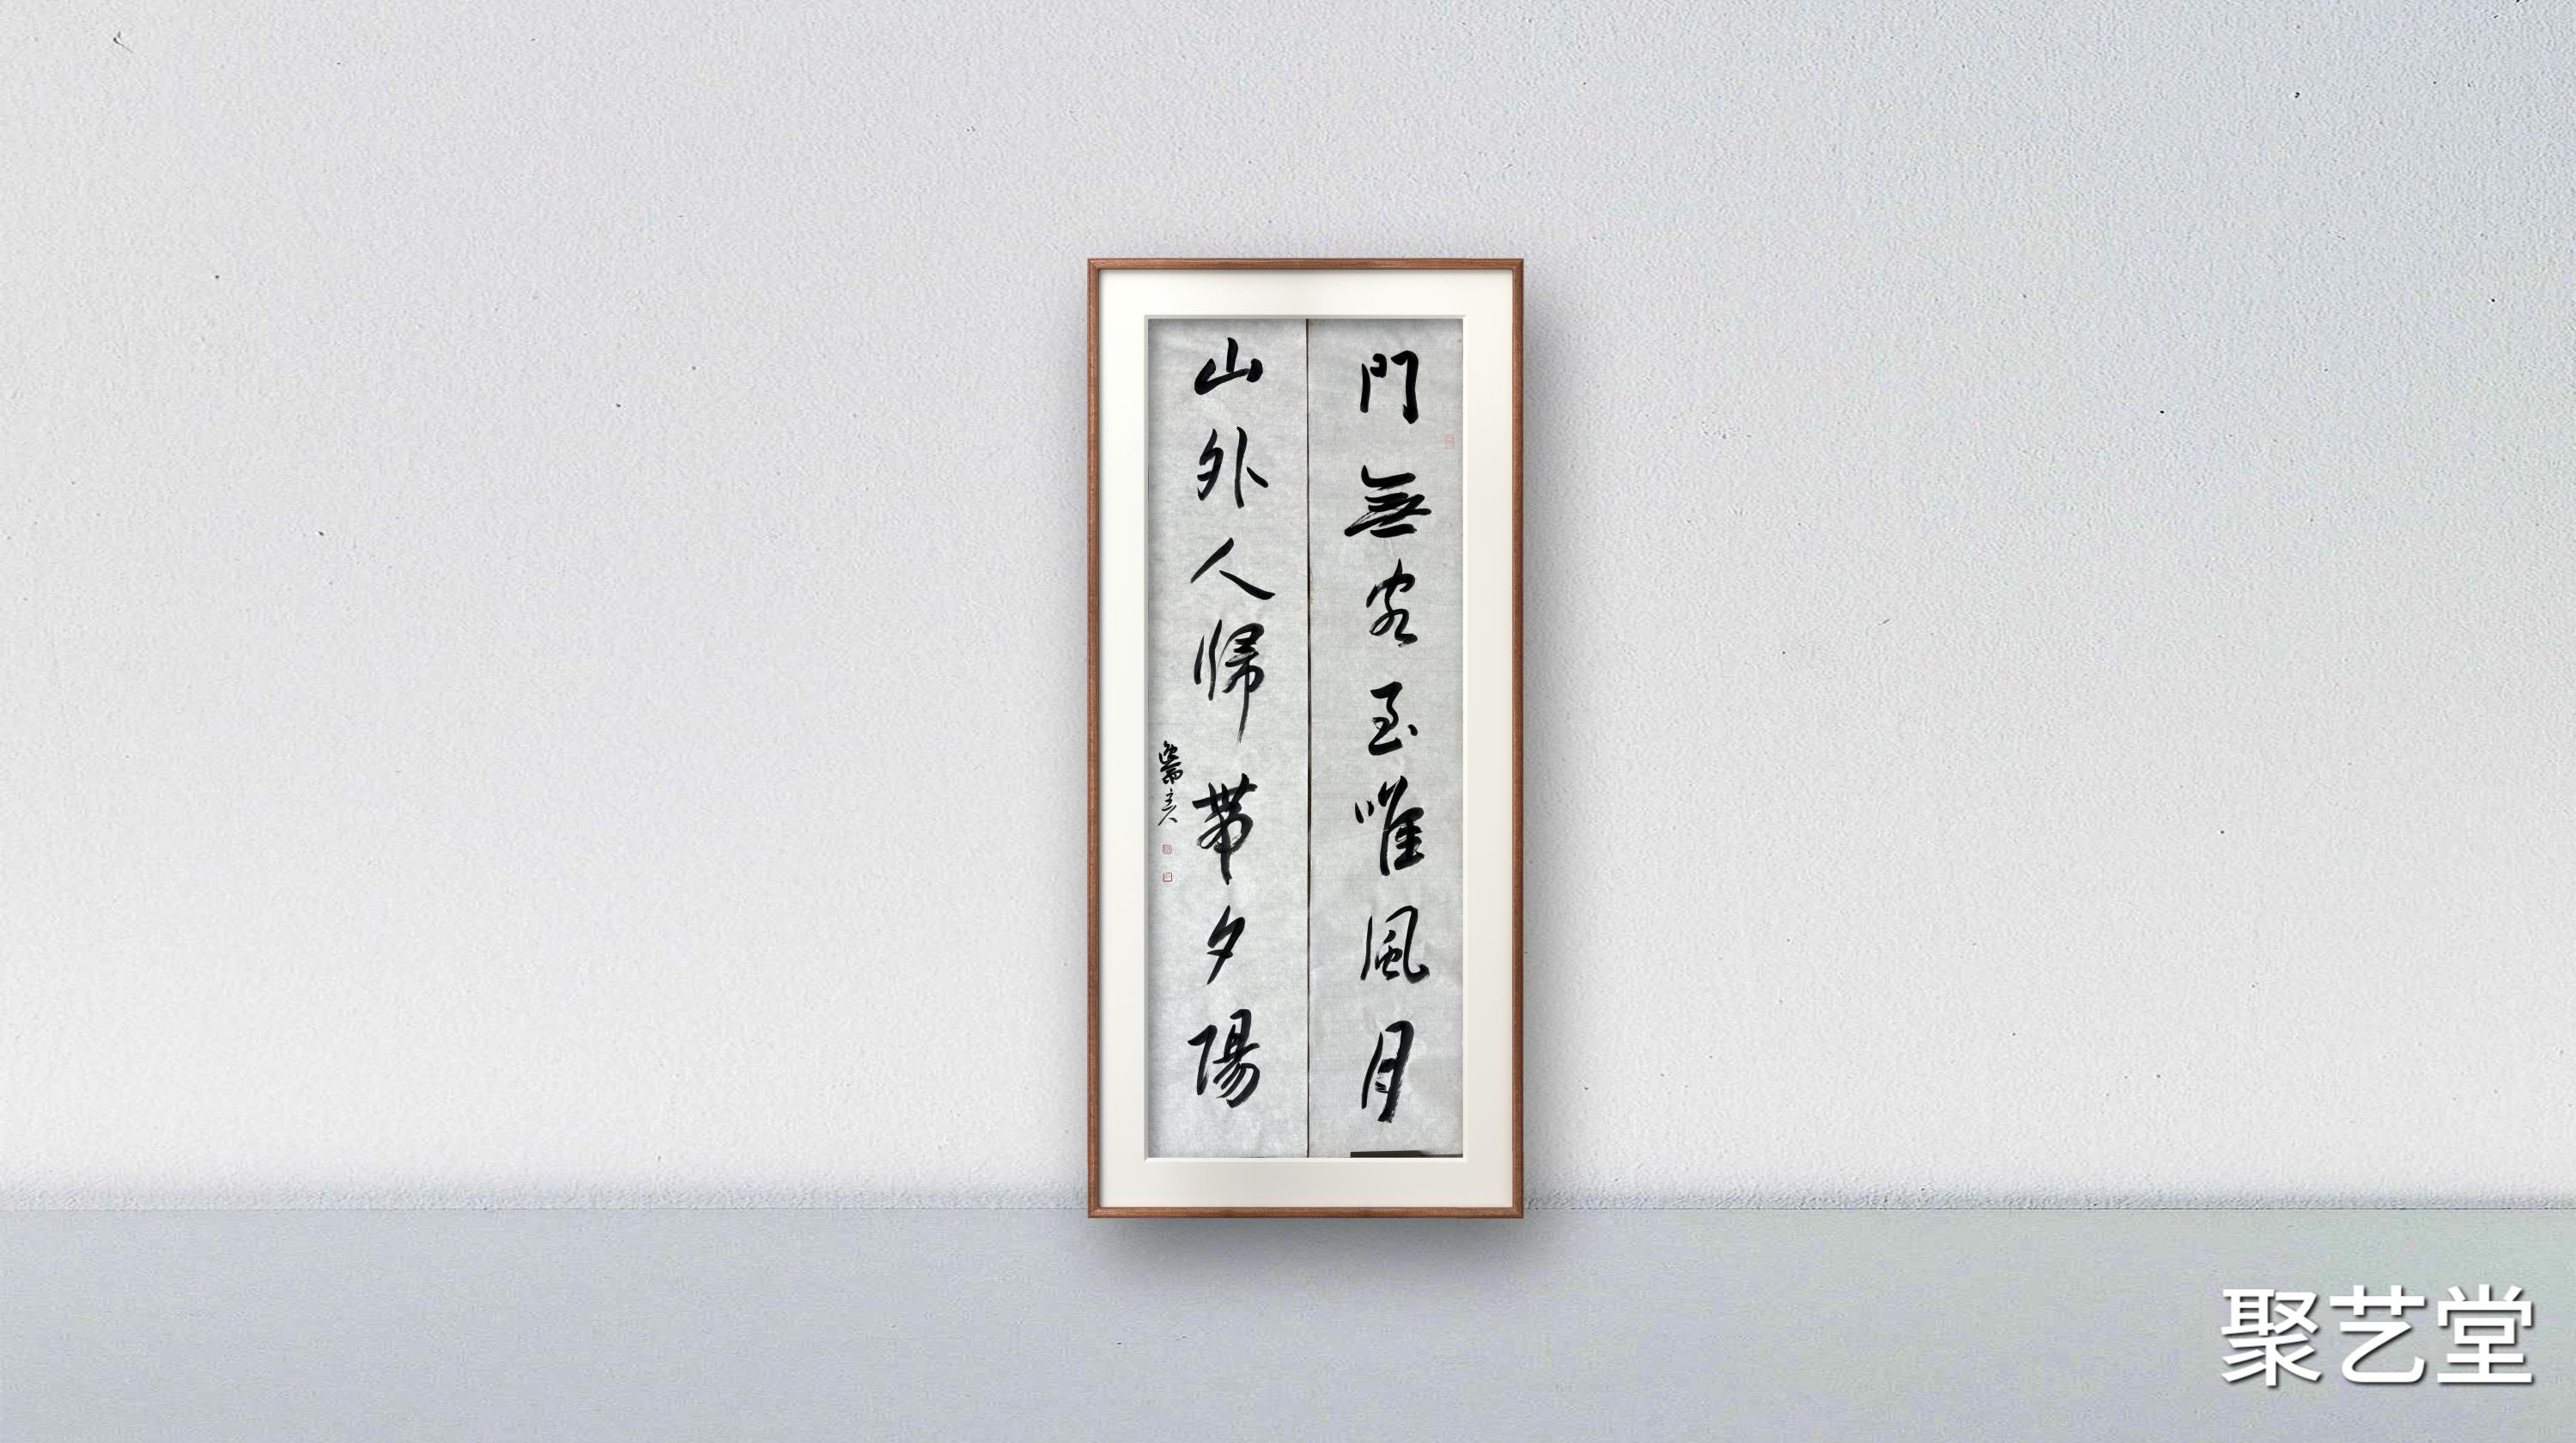 門無客至唯風月
山外人歸帶夕陽
聚艺堂